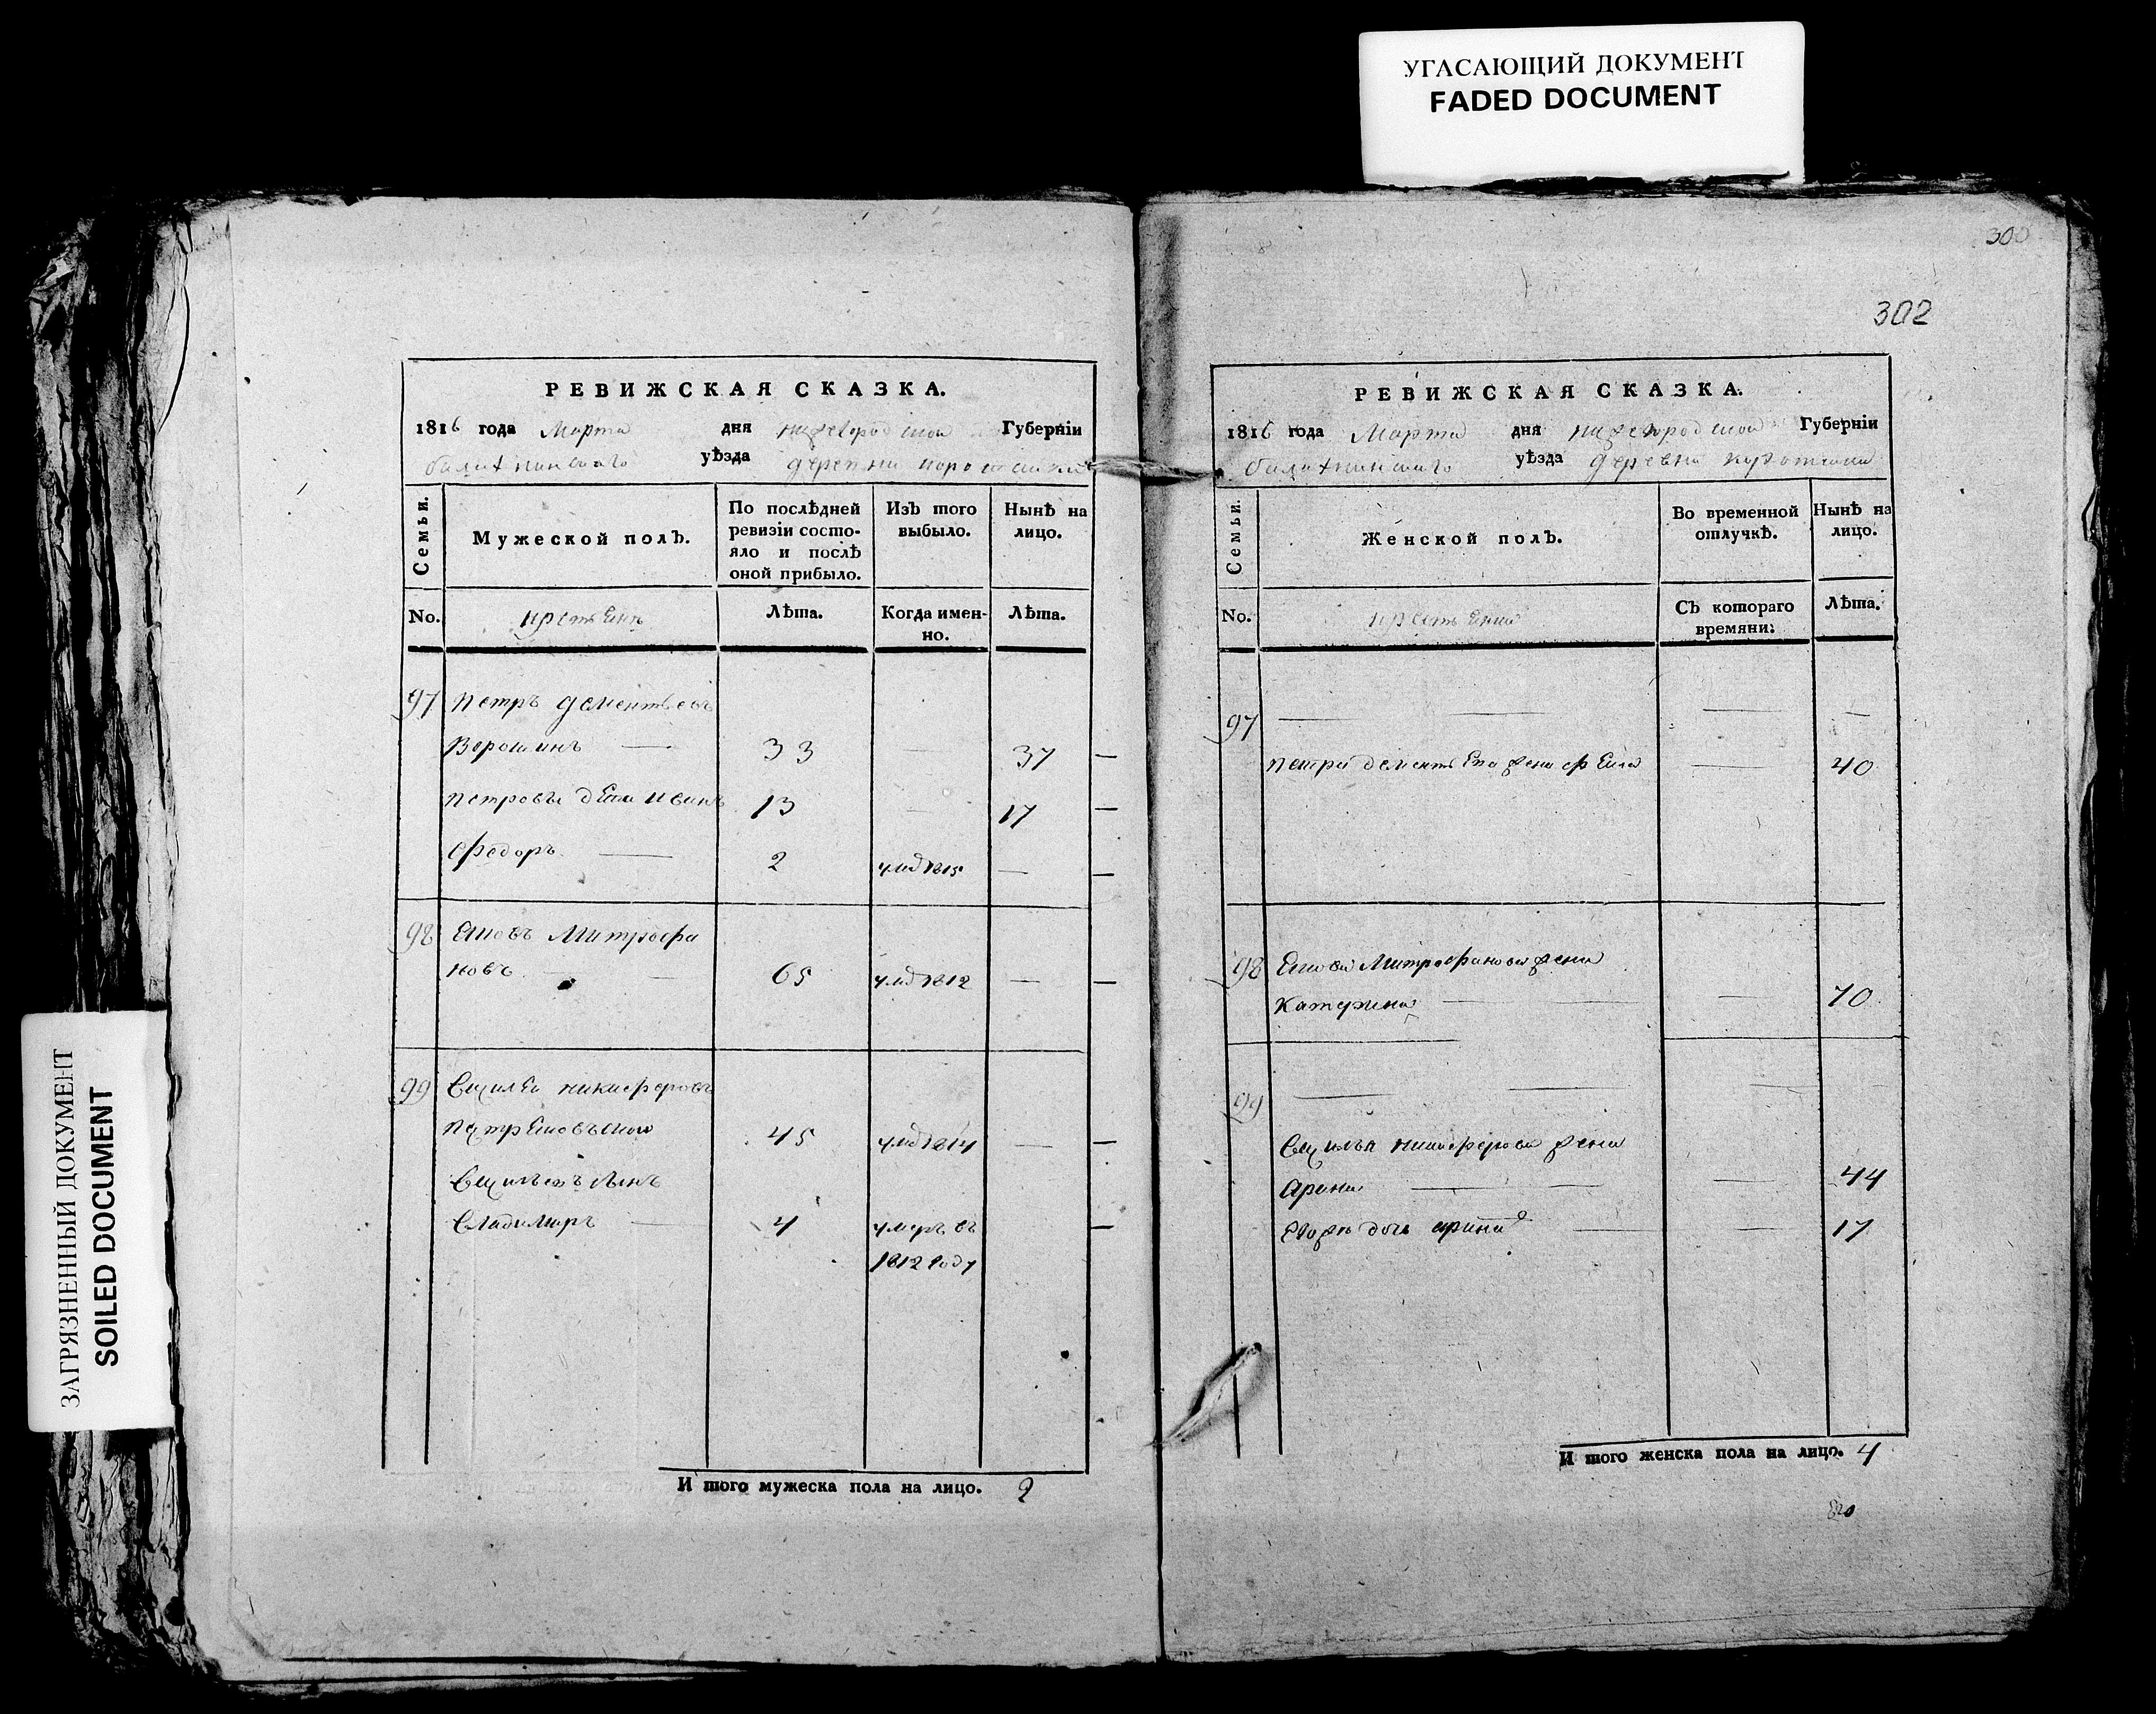 УГАСАЮЩИЙ ДОКУМЕНТ
FADED DOCUMENT
ЗАГРЯЗНЕННЫЙ ДОКУМЕНТ
SOILED DOCUMENT
РЕВИЖСКАЯ СКАЗКА.
1816 года Марта дня нижегородской Губерніи
балахнинскаго уѣзда деревни
Семьи. Мужеской полъ. По послѣдней ревизіи состояло и послѣ оной прибыло. Изъ того выбыло. Нынѣ на лицо.
No. Лѣта. Когда именно. Лѣта.
97 Петръ дементьевъ
Ворошинъ — 33 — 37 —
Петровы дети иванъ 13 — 17 —
Федоръ — 2 умѣ 1815 — —
98 Митрофа
новъ — 65 умѣ 1812 — —
99 Василеи никифоровъ
45 умѣ 1814 — —
Васильевъ сынъ
Владимиръ — 4 умеръ въ —
1812 году
И того мужеска пола на лицо. 2
300
302
РЕВИЖСКАЯ СКАЗКА.
1816 года Марта дня нижегородской Губерніи
балахнинскаго уѣзда деревни
Семьи. Женской полъ. Во временной отлучкѣ. Нынѣ на лицо.
No. Съ котораго времяни: Лѣта.
97 — — — —
Петра дементьева жена — 40
98 Митрофанова жена
Катерина — — — 70
99 — — —
Василья никифорова жена
Арина — — — 44
Егожъ дочь арина — — 17
И того женска пола на лицо. 4